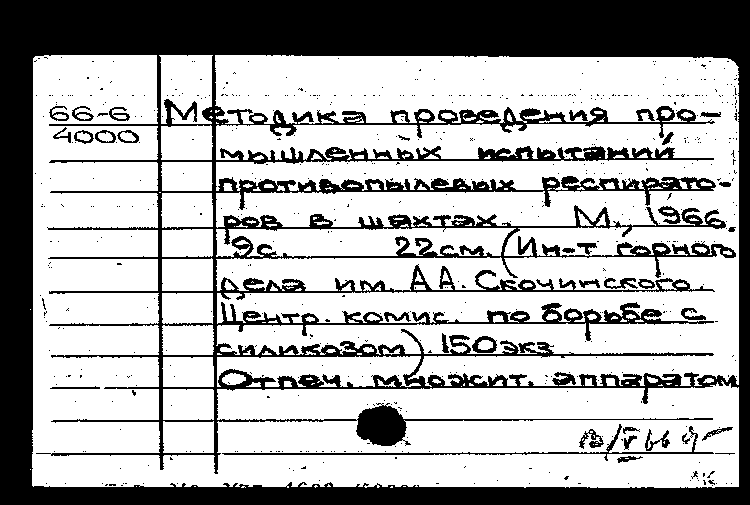 66-6 Методика проведения про-
4000
мышленных испытаний
противопылевых респирато-
ров в шахтах. М., 1966.
9с. 22см. (Ин-т горного
дела им. А.А. Скочинского.
Центр. комис. по борьбе с
силикозом). 150 экз.
Отпеч. множит. аппаратом